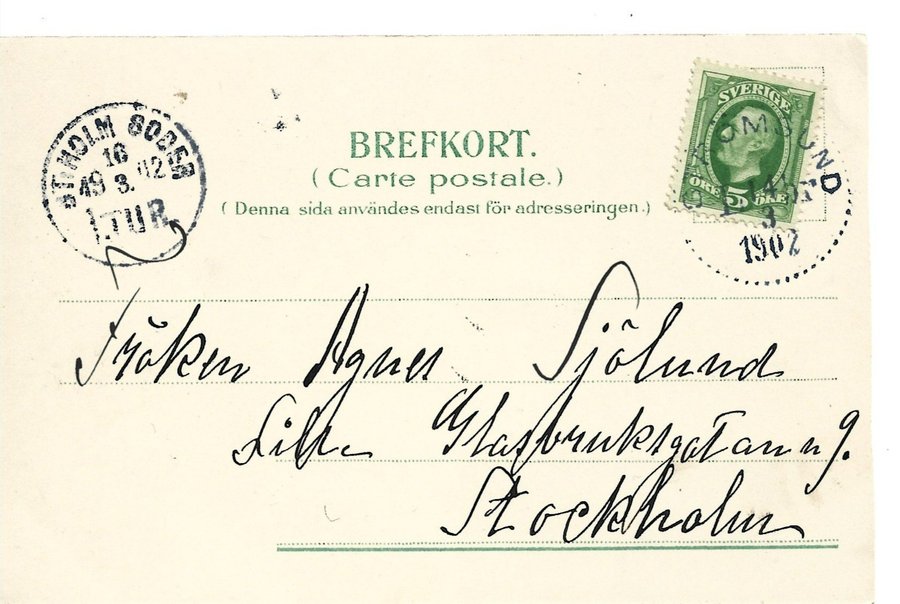 BREFKORT.
(Carte postale.)
(Denna sida användes endast för adresseringen.)
STHOLM SÖDER
16
19 3. 02
1.TUR
SVERIGE
ÖRE 5 ÖRE
STRÖMSUND
14
3
1902
Fröken Agnes Sjölund
Lilla Glasbruksgatan n 9.
Stockholm